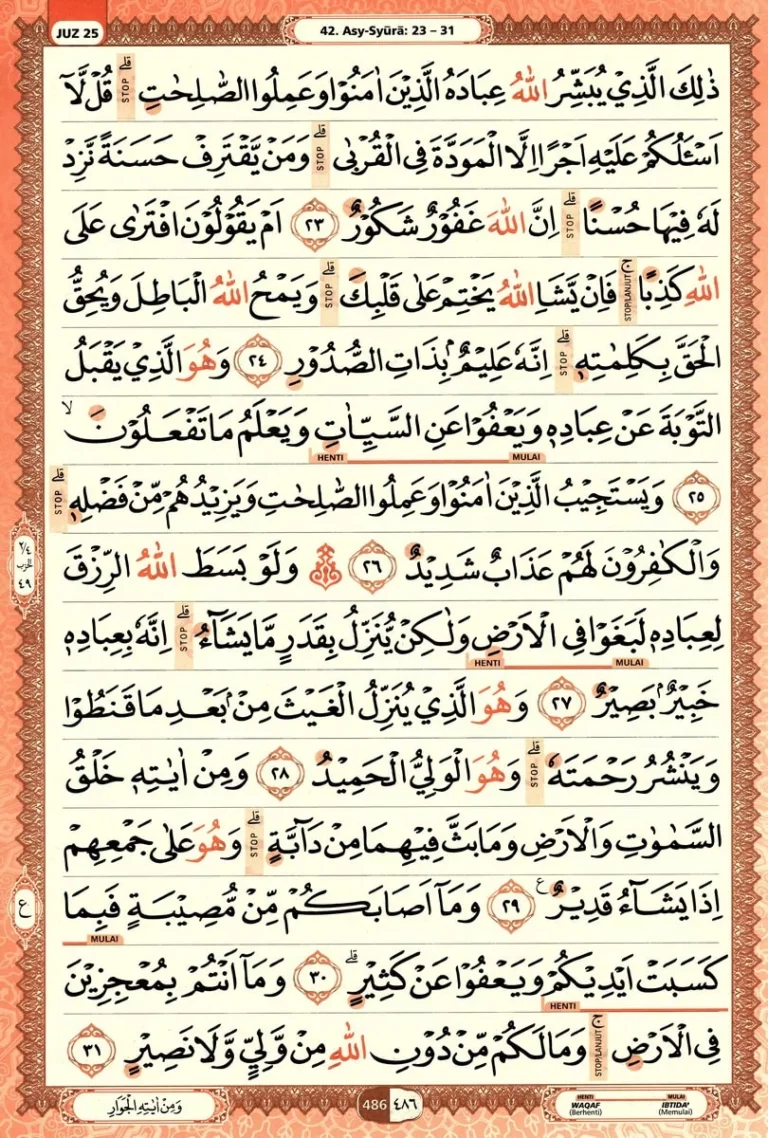 JUZ 25
42. Asy-Syūrā: 23 – 31
ذٰلِكَ الَّذِيْ يُبَشِّرُ اللّٰهُ عِبَادَهُ الَّذِيْنَ اٰمَنُوْا وَعَمِلُوا الصّٰلِحٰتِۗ STOP قُلْ لَّآ
اَسْـَٔلُكُمْ عَلَيْهِ اَجْرًا اِلَّا الْمَوَدَّةَ فِى الْقُرْبٰىۗ STOP وَمَنْ يَّقْتَرِفْ حَسَنَةً نَّزِدْ
لَهٗ فِيْهَا حُسْنًاۗ STOP اِنَّ اللّٰهَ غَفُوْرٌ شَكُوْرٌ ٢٣ اَمْ يَقُوْلُوْنَ افْتَرٰى عَلَى
اللّٰهِ كَذِبًاۚ STOP/LANJUT فَاِنْ يَّشَاِ اللّٰهُ يَخْتِمْ عَلٰى قَلْبِكَۗ STOP وَيَمْحُ اللّٰهُ الْبَاطِلَ وَيُحِقُّ
الْحَقَّ بِكَلِمٰتِهٖۗ STOP اِنَّهٗ عَلِيْمٌۢ بِذَاتِ الصُّدُوْرِ ٢٤ وَهُوَ الَّذِيْ يَقْبَلُ
التَّوْبَةَ عَنْ عِبَادِهٖ وَيَعْفُوْا عَنِ السَّيِّاٰتِ وَيَعْلَمُ مَا تَفْعَلُوْنَۙ
HENTI MULAI
٢٥ وَيَسْتَجِيْبُ الَّذِيْنَ اٰمَنُوْا وَعَمِلُوا الصّٰلِحٰتِ وَيَزِيْدُهُمْ مِّنْ فَضْلِهٖۗ STOP
وَالْكٰفِرُوْنَ لَهُمْ عَذَابٌ شَدِيْدٌ ٢٦ ۞ وَلَوْ بَسَطَ اللّٰهُ الرِّزْقَ
٢/٤ الحزب ٤٩
لِعِبَادِهٖ لَبَغَوْا فِى الْاَرْضِ وَلٰكِنْ يُّنَزِّلُ بِقَدَرٍ مَّا يَشَاۤءُۗ STOP اِنَّهٗ بِعِبَادِهٖ
HENTI MULAI
خَبِيْرٌۢ بَصِيْرٌ ٢٧ وَهُوَ الَّذِيْ يُنَزِّلُ الْغَيْثَ مِنْۢ بَعْدِ مَا قَنَطُوْا
وَيَنْشُرُ رَحْمَتَهٗۗ STOP وَهُوَ الْوَلِيُّ الْحَمِيْدُ ٢٨ وَمِنْ اٰيٰتِهٖ خَلْقُ
السَّمٰوٰتِ وَالْاَرْضِ وَمَا بَثَّ فِيْهِمَا مِنْ دَاۤبَّةٍۗ STOP وَهُوَ عَلٰى جَمْعِهِمْ
اِذَا يَشَاۤءُ قَدِيْرٌ ࣖ ٢٩ وَمَآ اَصَابَكُمْ مِّنْ مُّصِيْبَةٍ فَبِمَا
ع
MULAI
كَسَبَتْ اَيْدِيْكُمْ وَيَعْفُوْا عَنْ كَثِيْرٍۗ ٣٠ وَمَآ اَنْتُمْ بِمُعْجِزِيْنَ
HENTI
فِى الْاَرْضِۚ STOP/LANJUT وَمَا لَكُمْ مِّنْ دُوْنِ اللّٰهِ مِنْ وَّلِيٍّ وَّلَا نَصِيْرٍ ٣١
وَمِنْ اٰيٰتِهِ الْجَوَارِ
486 ٤٨٦
HENTI WAQAF (Berhenti) MULAI IBTIDA' (Memulai)